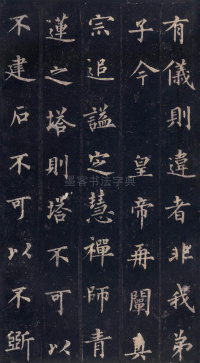 有儀則違者非我弟
子今 皇帝再闡真
宗追謚定慧禪師青
蓮之塔則塔不可以
不建石不可以不斲
墨客书法字典